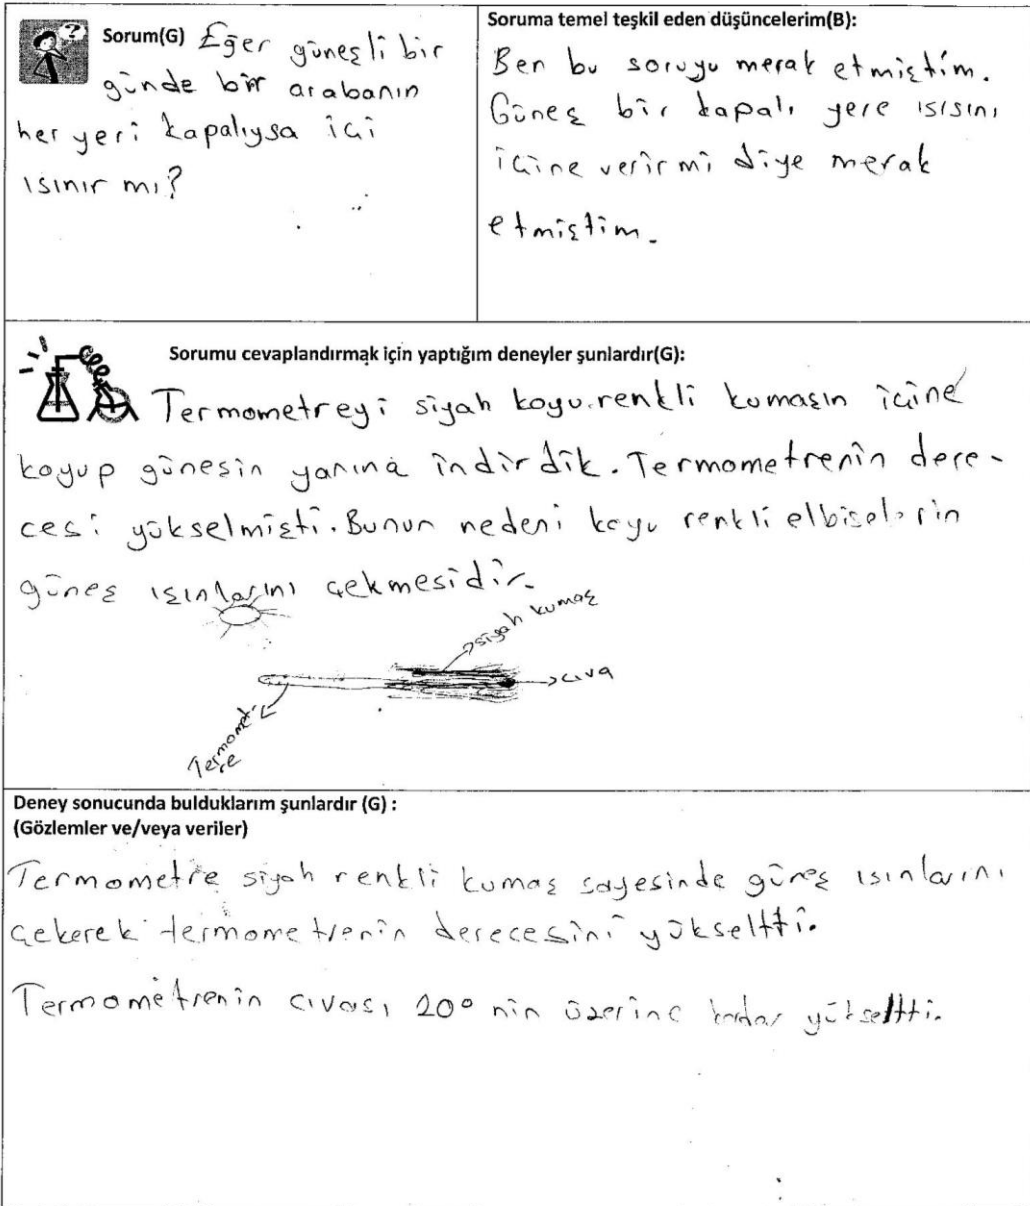 Sorum(G) Eğer güneşli bir
günde bir arabanın
her yeri kapalıysa içi
ısınır mı?
Soruma temel teşkil eden düşüncelerim(B):
Ben bu soruyu merak etmiştim.
Güneş bir kapalı yere ısısını
içine verir mi diye merak
etmiştim.
Sorumu cevaplandırmak için yaptığım deneyler şunlardır(G):
Termometreyi siyah koyu renkli kumaşın içine
koyup güneşin yanına indirdik. Termometrenin dere-
cesi yükselmişti. Bunun nedeni koyu renkli elbiselerin
güneş ışınlarını çekmesidir.
siyah kumaş
cıva
Termomet-
re
Deney sonucunda bulduklarım şunlardır (G) :
(Gözlemler ve/veya veriler)
Termometre siyah renkli kumaş sayesinde güneş ışınlarını
çekerek termometrenin derecesini yükseltti.
Termometrenin cıvası 20° nin üzerine kadar yükseltti.